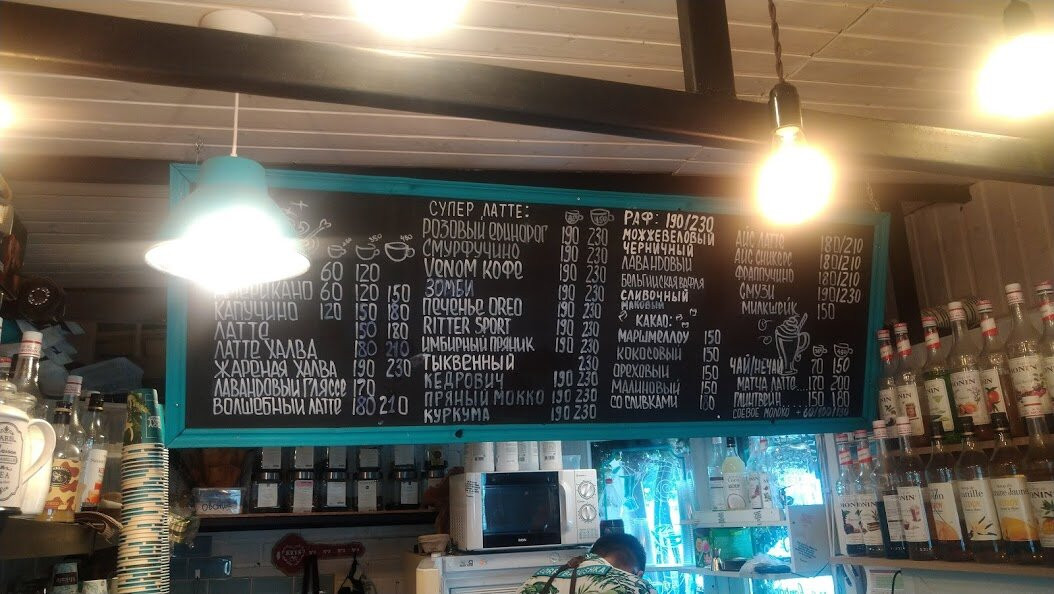 60 120
60 120 150
КАПУЧИНО 120 150 180
ЛАТТЕ 150 180
ЛАТТЕ ХАЛВА 180 210
ЖАРЕНАЯ ХАЛВА 190 230
ЛАВАНДОВЫЙ ГЛЯССЕ 170
ВОЛШЕБНЫЙ ЛАТТЕ 180 210
СУПЕР ЛАТТЕ:
РОЗОВЫЙ ЕДИНОРОГ 190 230
СМУРФУЧИНО 190 230
VENOM КОФЕ 190 230
ЗОМБИ 190 230
ПЕЧЕНЬЕ OREO 190 230
RITTER SPORT 190 230
ИМБИРНЫЙ ПРЯНИК 190 230
ТЫКВЕННЫЙ 230
КЕДРОВИЧ 190 230
ПРЯНЫЙ МОККО 190 230
КУРКУМА 190 230
РАФ: 190/230
МОЖЖЕВЕЛОВЫЙ
ЧЕРНИЧНЫЙ
ЛАВАНДОВЫЙ
БЕЛЬГИЙСКАЯ ВАФЛЯ
СЛИВОЧНЫЙ
КАКАО:
МАРШМЕЛЛОУ 150
КОКОСОВЫЙ 150
ОРЕХОВЫЙ 150
МАЛИНОВЫЙ 150
СО СЛИВКАМИ
АЙС ЛАТТЕ 180/210
АЙС СНИКЕРС 180/210
ФРАППУЧИНО 180/210
СМУЗИ 190/230
МИЛКШЕЙК 150
ЧАЙ/ИВАН ЧАЙ 70 150
МАТЧА ЛАТТЕ 170 200
ГЛИНТВЕЙН 150 180
СОЕВОЕ МОЛОКО
MONIN
MONIN
MONIN